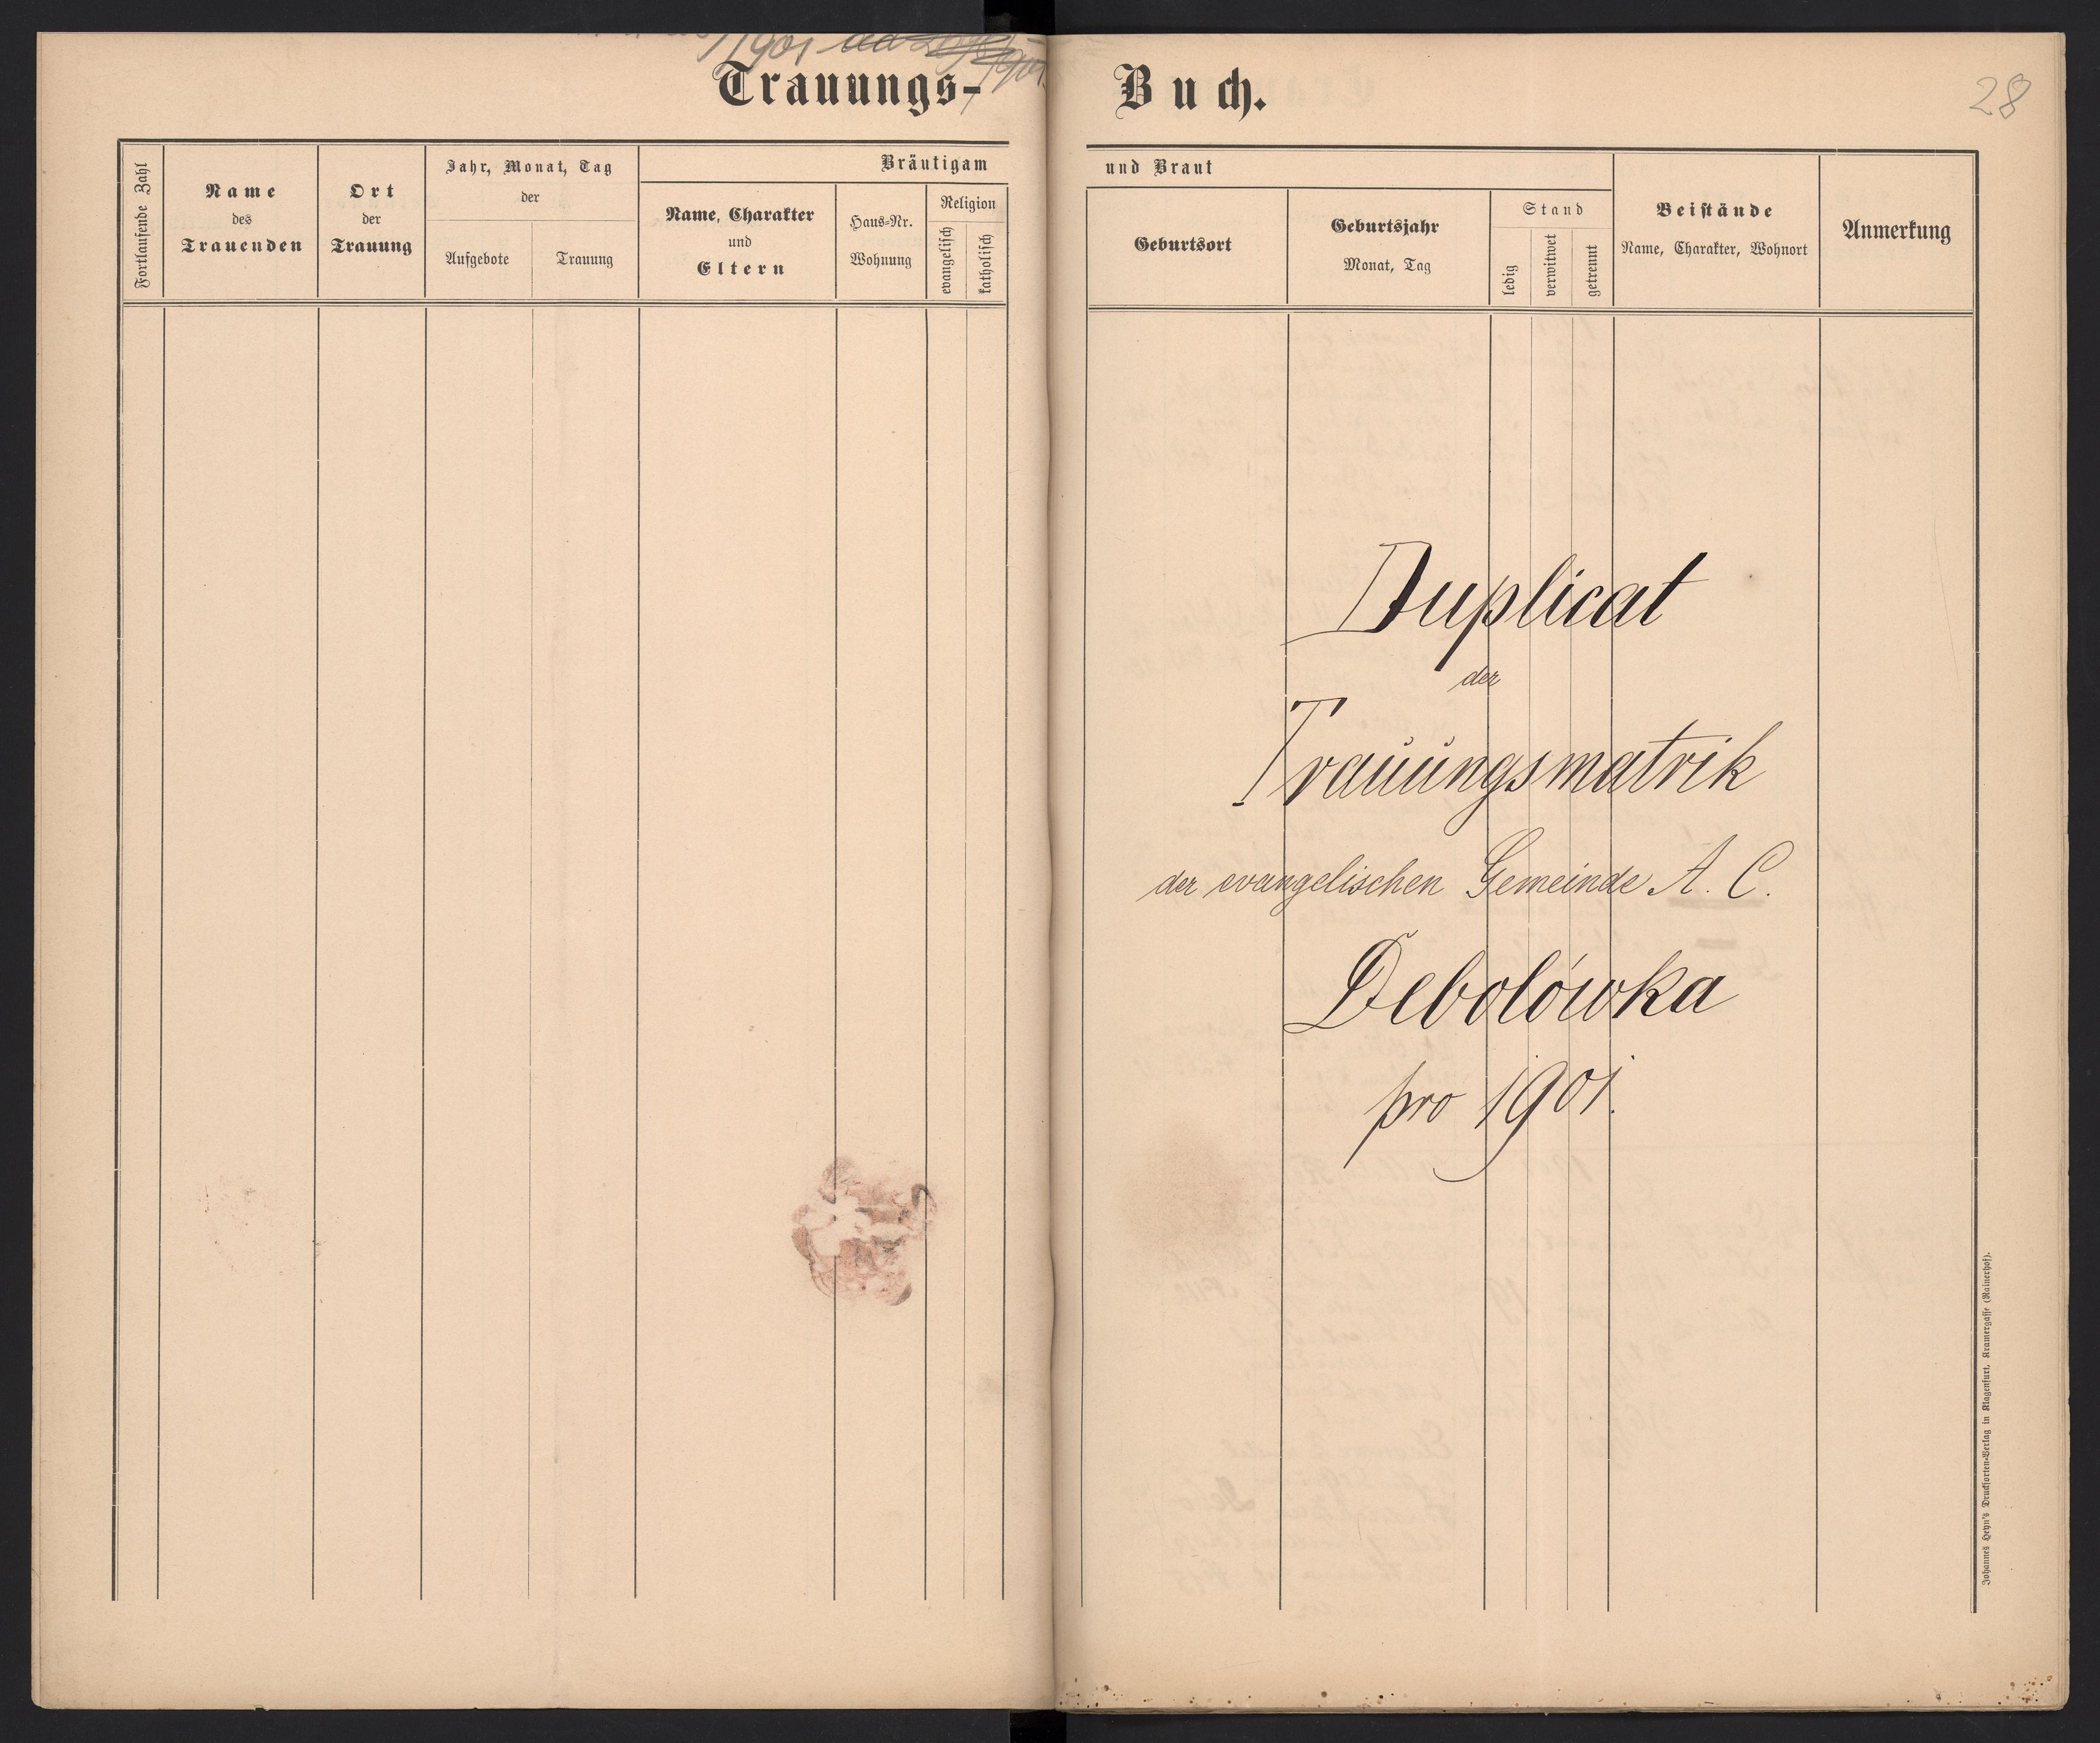 1901
Trauungs-
Fortlaufende Zahl
Name
des
Trauenden
Ort
der
Trauung
Jahr, Monat, Tag
der
Aufgebote
Trauung
Bräutigam
Name, Charakter
und
Eltern
Haus-Nr.
Wohnung
Religion
evangelisch
katholisch
Buch.
28
und Braut
Geburtsort
Geburtsjahr
Monat, Tag
Stand
ledig
verwitwet
getrennt
Beistände
Name, Charakter, Wohnort
Anmerkung
Duplicat
der
Trauungsmatrik
der evangelischen Gemeinde A. C.
Debolówka
pro 1901.
Johannes Heyn's Drucksorten-Verlag in Klagenfurt, Kramergasse (Rainerhof).